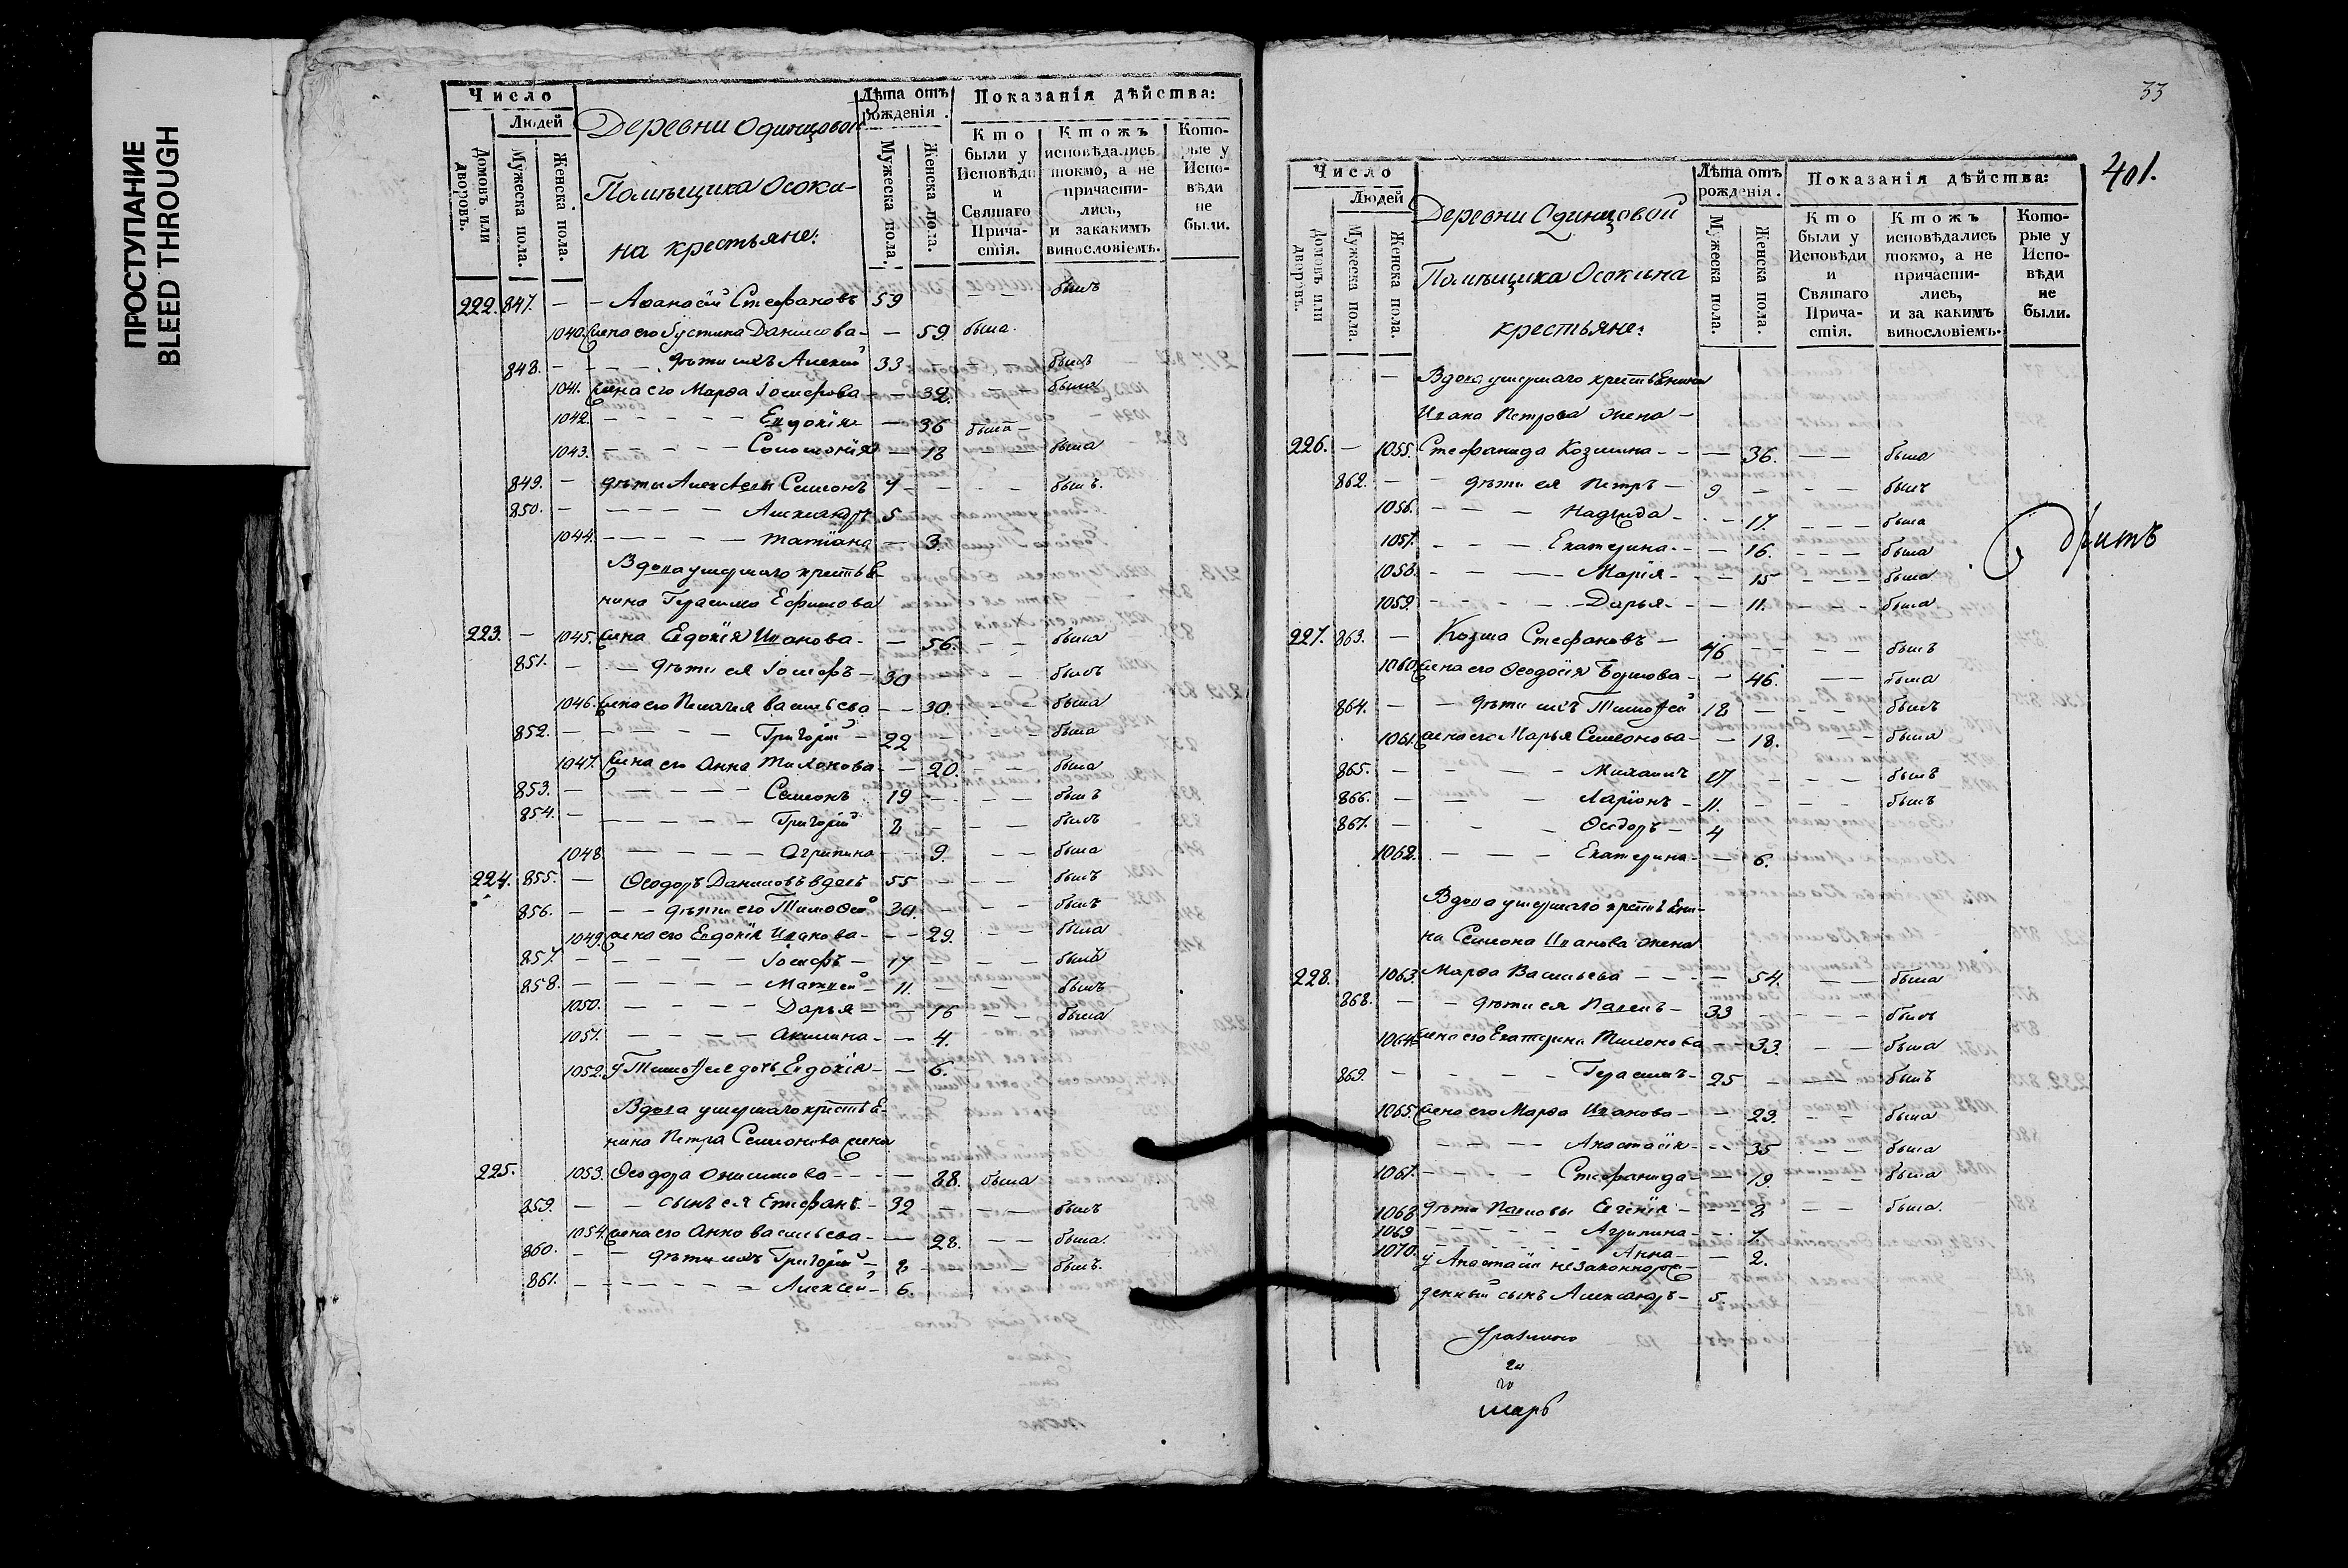 ПРОСТУПАНИЕ
BLEED THROUGH
Число
Людей
Домовъ или дворовъ.
Мужеска пола.
Женска пола.
Деревни Одинцовой
Помѣщика Осоки-
на крестьяне:
Лѣта отъ рожденія.
Мужеска пола.
Женска пола.
Показанія дѣйства:
Кто были у Исповѣди и Святаго Прича-стія.
Ктожъ исповѣдались токмо, а не причасти-лись, и закакимъ винословіемъ.
Кото-рые у Испо-вѣди не были.
222. 847. — — Аѳанасій Стефановъ 59 — — былъ
1040. жена его Іустина Данилова — — 59. была.
848. — — — дѣти ихъ Алексѣй 33 — былъ
1041. жена его Марѳа Іосифова — — 32. — была
1042. — — — Евдокія — 36 была —
1043. — — — Соломонія — 18 — — была
849. — дѣти Алексѣевы Семіонъ 7 — — — былъ.
850. — — — — Александръ 5 —
1044. — — — — Татіана — 3.
Вдова умершаго крестьѧ-
нина Герасима Ефимова
223. — 1045. жена Евдокія Иванова — — 56. — — была
851. — — дѣти ея Іосифъ — 30 — — былъ
1046. жена его Пелагея Васильева — — 30. — — была
852. — — — — Григорій — 22 — — была
1047. жена его Анна Тихонова — — 20. — — была
853. — — — — Семіонъ 19 — — — былъ
854. — — — — Григорій 8 — — — былъ
1048. — — — — Агрипина — — 9. — — была
224. 855. — Ѳеодоръ Даниловъ вдовъ 55 — — — былъ
856. — — — дѣти его Тимоѳей 30. — — — былъ
1049. жена его Евдокія Иванова — — 29. — — была
857. — — — — Іосифъ — 17 — — — былъ
858. — — — — Матвей — 11. — — — былъ
1050. — — — — Дарья — — 16 — — была
1051. — — — — Акилина — — 4.
1052. У Тимоѳея дочь Евдокія — — 6.
Вдова умершаго крестьѧ-
нина Петра Семіонова жена
225. 1053. Ѳеодора Онисимова — — — 88. была
859. — — сынъ ея Стефанъ — 32 — — — былъ
1054. жена его Анна Васильева — — 28. — — была.
860. — — дѣти ихъ Григорій — 8 — — — былъ.
861. — — — — Алексей — 6.
33
401.
Число
Людей
Домовъ или дворовъ.
Мужеска пола.
Женска пола.
Деревни Одинцовой
Помѣщика Осокина
крестьяне:
Лѣта отъ рожденія.
Мужеска пола.
Женска пола.
Показанія дѣйства:
Кто были у Исповѣди и Святаго Прича-стія.
Ктожъ исповѣдались токмо, а не причасти-лись, и за какимъ винословіемъ.
Кото-рые у Испо-вѣди не были.
— Вдова умершаго крестьѧнина
Ивана Петрова жена —
226. — 1055. Стефанида Козмина — — — 36. — — была
862. — — дѣти ея Петръ — 9 — — — былъ
1056. — — — Надежда — — 17. — — — была
1057. — — — Екатерина — — 16. — — — была
1058. — — — Марія — — 15 — — — была
1059. — — — Дарья — — 11. — — — была
227. 863. — Козма Стефановъ — 46 — — — былъ
1060. жена его Ѳеодосія Борисова — — 46. — — была
864. — — дѣти ихъ Тимоѳей 18 — — — былъ
1061. жена его Марья Семіонова — — 18. — — была
865. — — — Михаилъ 17 — — — былъ
866. — — — Ларіонъ — 11. — — — былъ
867. — — — Ѳеодоръ — 4
1062. — — — Екатерина — — 6.
Вдова умершаго крестьѧни-
на Семіона Иванова жена
228. 1063. Марѳа Васильева — — — 54. — — была
868. — — дѣти ея Павелъ — 33 — — — былъ
1064. жена его Екатерина Тихонова — — 33. — — была
869. — — — — Герасимъ — 25 — — былъ
1065. жена его Марѳа Иванова — — 23. — — была
— — — Анастасія — — 35 — — была
1067. — — — Стефанида — — 19. — — была
1068 дѣти Павловы Евгенія — — — 8 — — была.
1069 — — — — Агрипина — — 7.
1070. — — — — Анна — — 2.
у Анастасіи незаконнорож-
денный сынъ Александръ — 5.